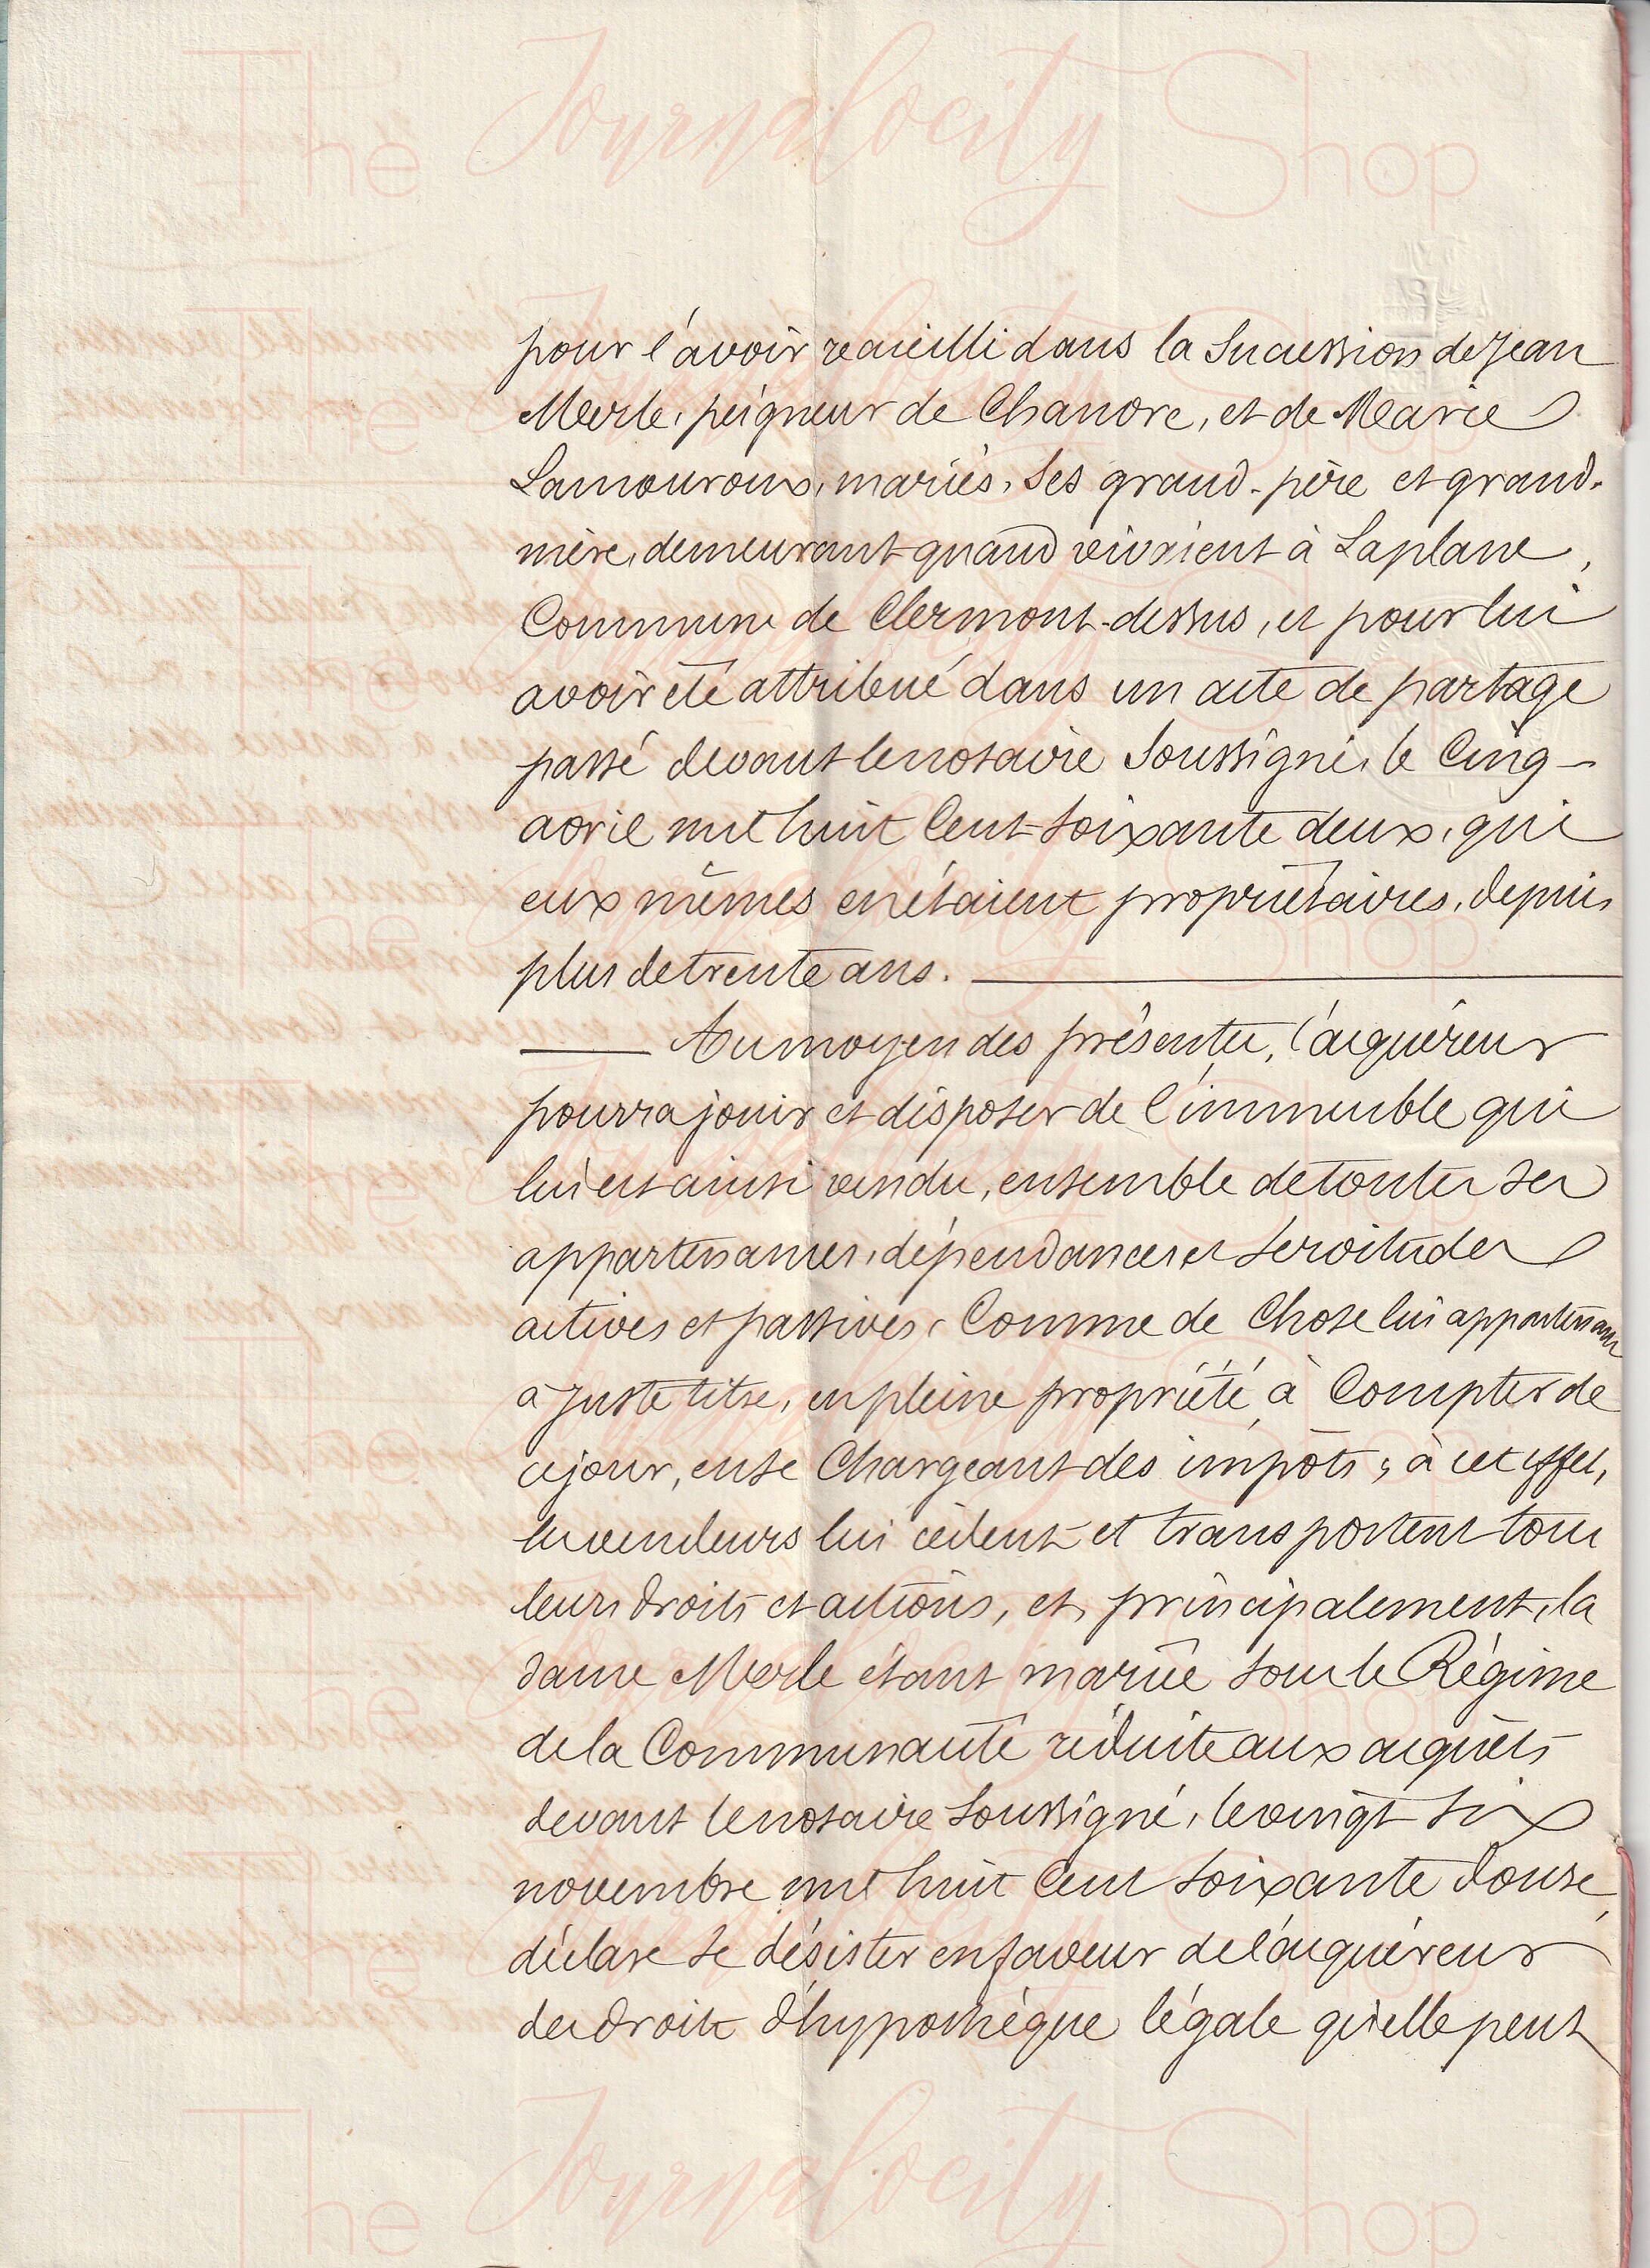 The Journalocity Shop
pour l'avoir recueilli dans la Succession de Jean
Merle, peigneur de Chanvre, et de Marie
Lamouroux, mariés, Ses grand-père et grand-
mère, demeurant quand vivaient à Laplane,
Commune de Clermont-dessus, et pour lui
avoir été attribué dans un acte de partage
passé devant le notaire Soussigné, le Cinq -
avril mil huit Cent Soixante deux, qui
eux mêmes en étaient propriétaires, depuis
plus de trente ans.
Au moyen des présentes, l'acquéreur
pourra jouir et disposer de l'immeuble qui
lui est ainsi vendu, ensemble de toutes ses
appartenances, dépendances et Servitudes
actives et passives, Comme de Chose lui appartenant
à Juste titre, en pleine propriété à Compter de
ce jour, en se Chargeant des impôts ; à cet effet,
les vendeurs lui cèdent et transportent tous
leurs droits et actions, et, principalement, la
dame Merle étant mariée Sous le Régime
de la Communauté réduite aux acquêts
devant le notaire Soussigné, le vingt Six
novembre mil huit Cent Soixante douze,
déclare Se désister en faveur de l'acquéreur
des droits d'hypothèque légale qu'elle peut
The Journalocity Shop